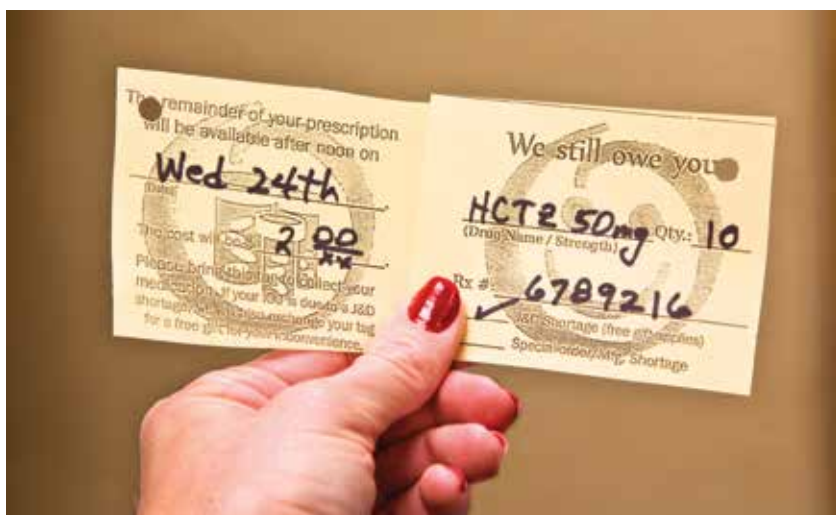 The remainder of your prescription
will be available after noon on
Wed 24th.
(Date)
The cost will be $ 2 00/xx.
Please bring this tag to collect your
medication. If your IOU is due to a J&D
shortage, exchange your tag
for a free gift for your inconvenience.
We still owe you
HCTZ 50mg Qty.: 10
(Drug Name / Strength)
Rx #: 6789216
✓ J&D Shortage (free gift applies)
Special order/Mfg. Shortage